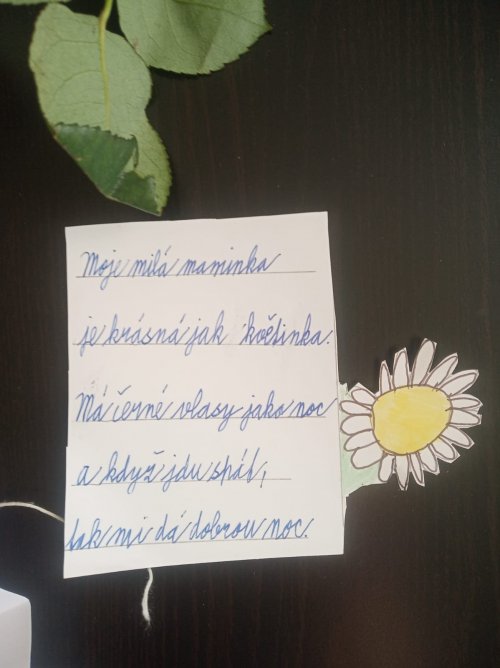 Moje milá maminka
je krásná jak květinka.
Má černé vlasy jako noc
a když jdu spát,
tak mi dá dobrou noc.